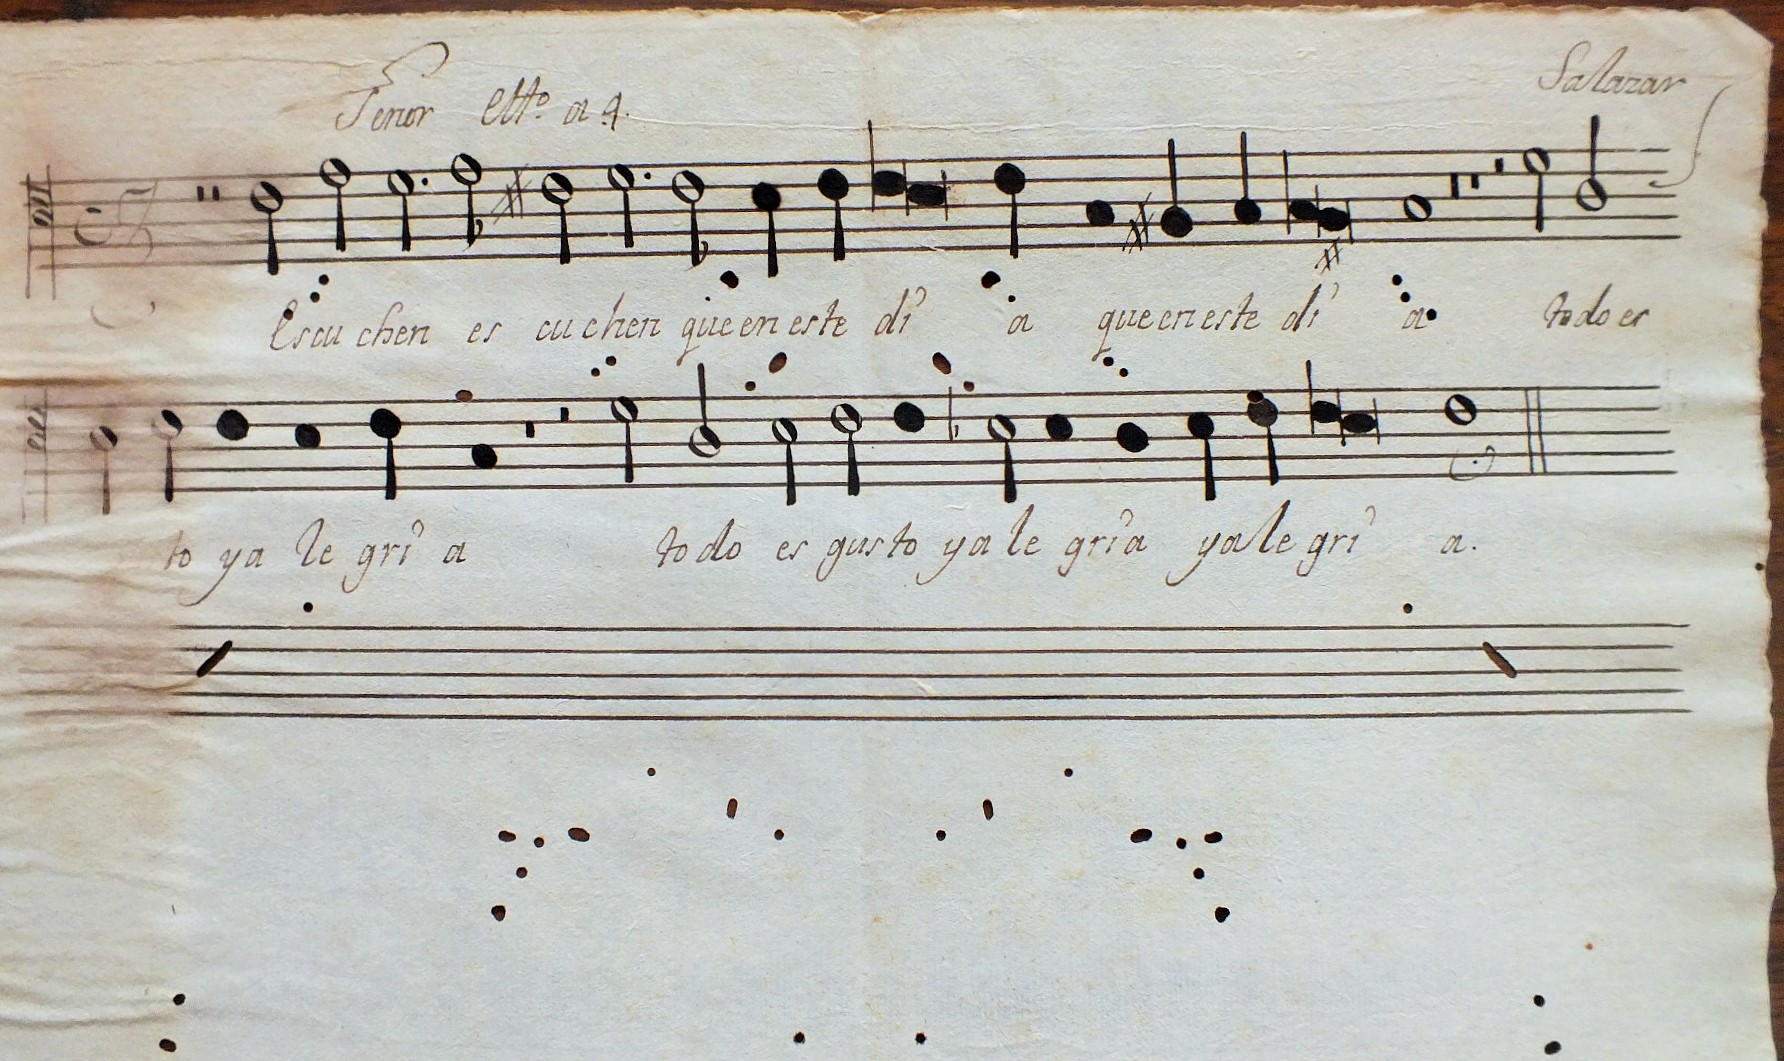 Tenor Estto. a 4. Salazar
Escuchen escuchen que en este dí a que en este dí a todo es
to y a le grí a todo es gusto y a le gría y a le grí a.